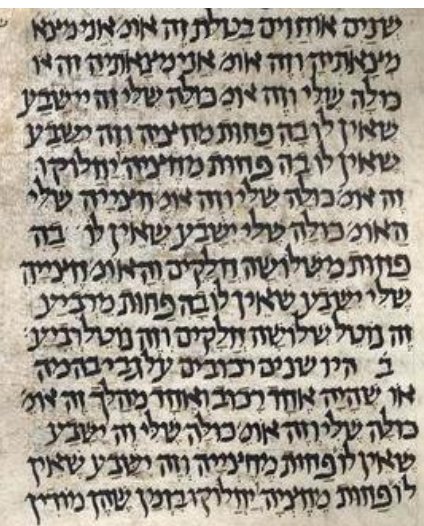 שנים אוחזים בטלית זה אומ' אני מצא
מצאתיה וזה אומ' אני מצאתיה זה או
כולה שלי וזה אומ' כולה שלי זה יישבע
שאין לו בה פחות מחציה וזה ישבע
שאין לו בה פחות מחציה יחלוקו
זה אומ' כולה שלי וזה אומ' חצייה שלי
האומ' כולה שלי ישבע שאין לו בה
פחות משלושה חלקים והאומ' חצייה
שלי ישבע שאין לו בה פחות מרביע
זה נוטל שלושה חלקים וזה נוטל רביע
ב היו שנים רכובים על גבי בהמה
או שהיה אחד רכוב ואחד מהלך זה אומ'
כולה שלי וזה אומ' כולה שלי זה ישבע
שאין לו פחות מחצייה וזה ישבע שאין
לו פחות מחציה יחלוקו בזמן שהן מודין